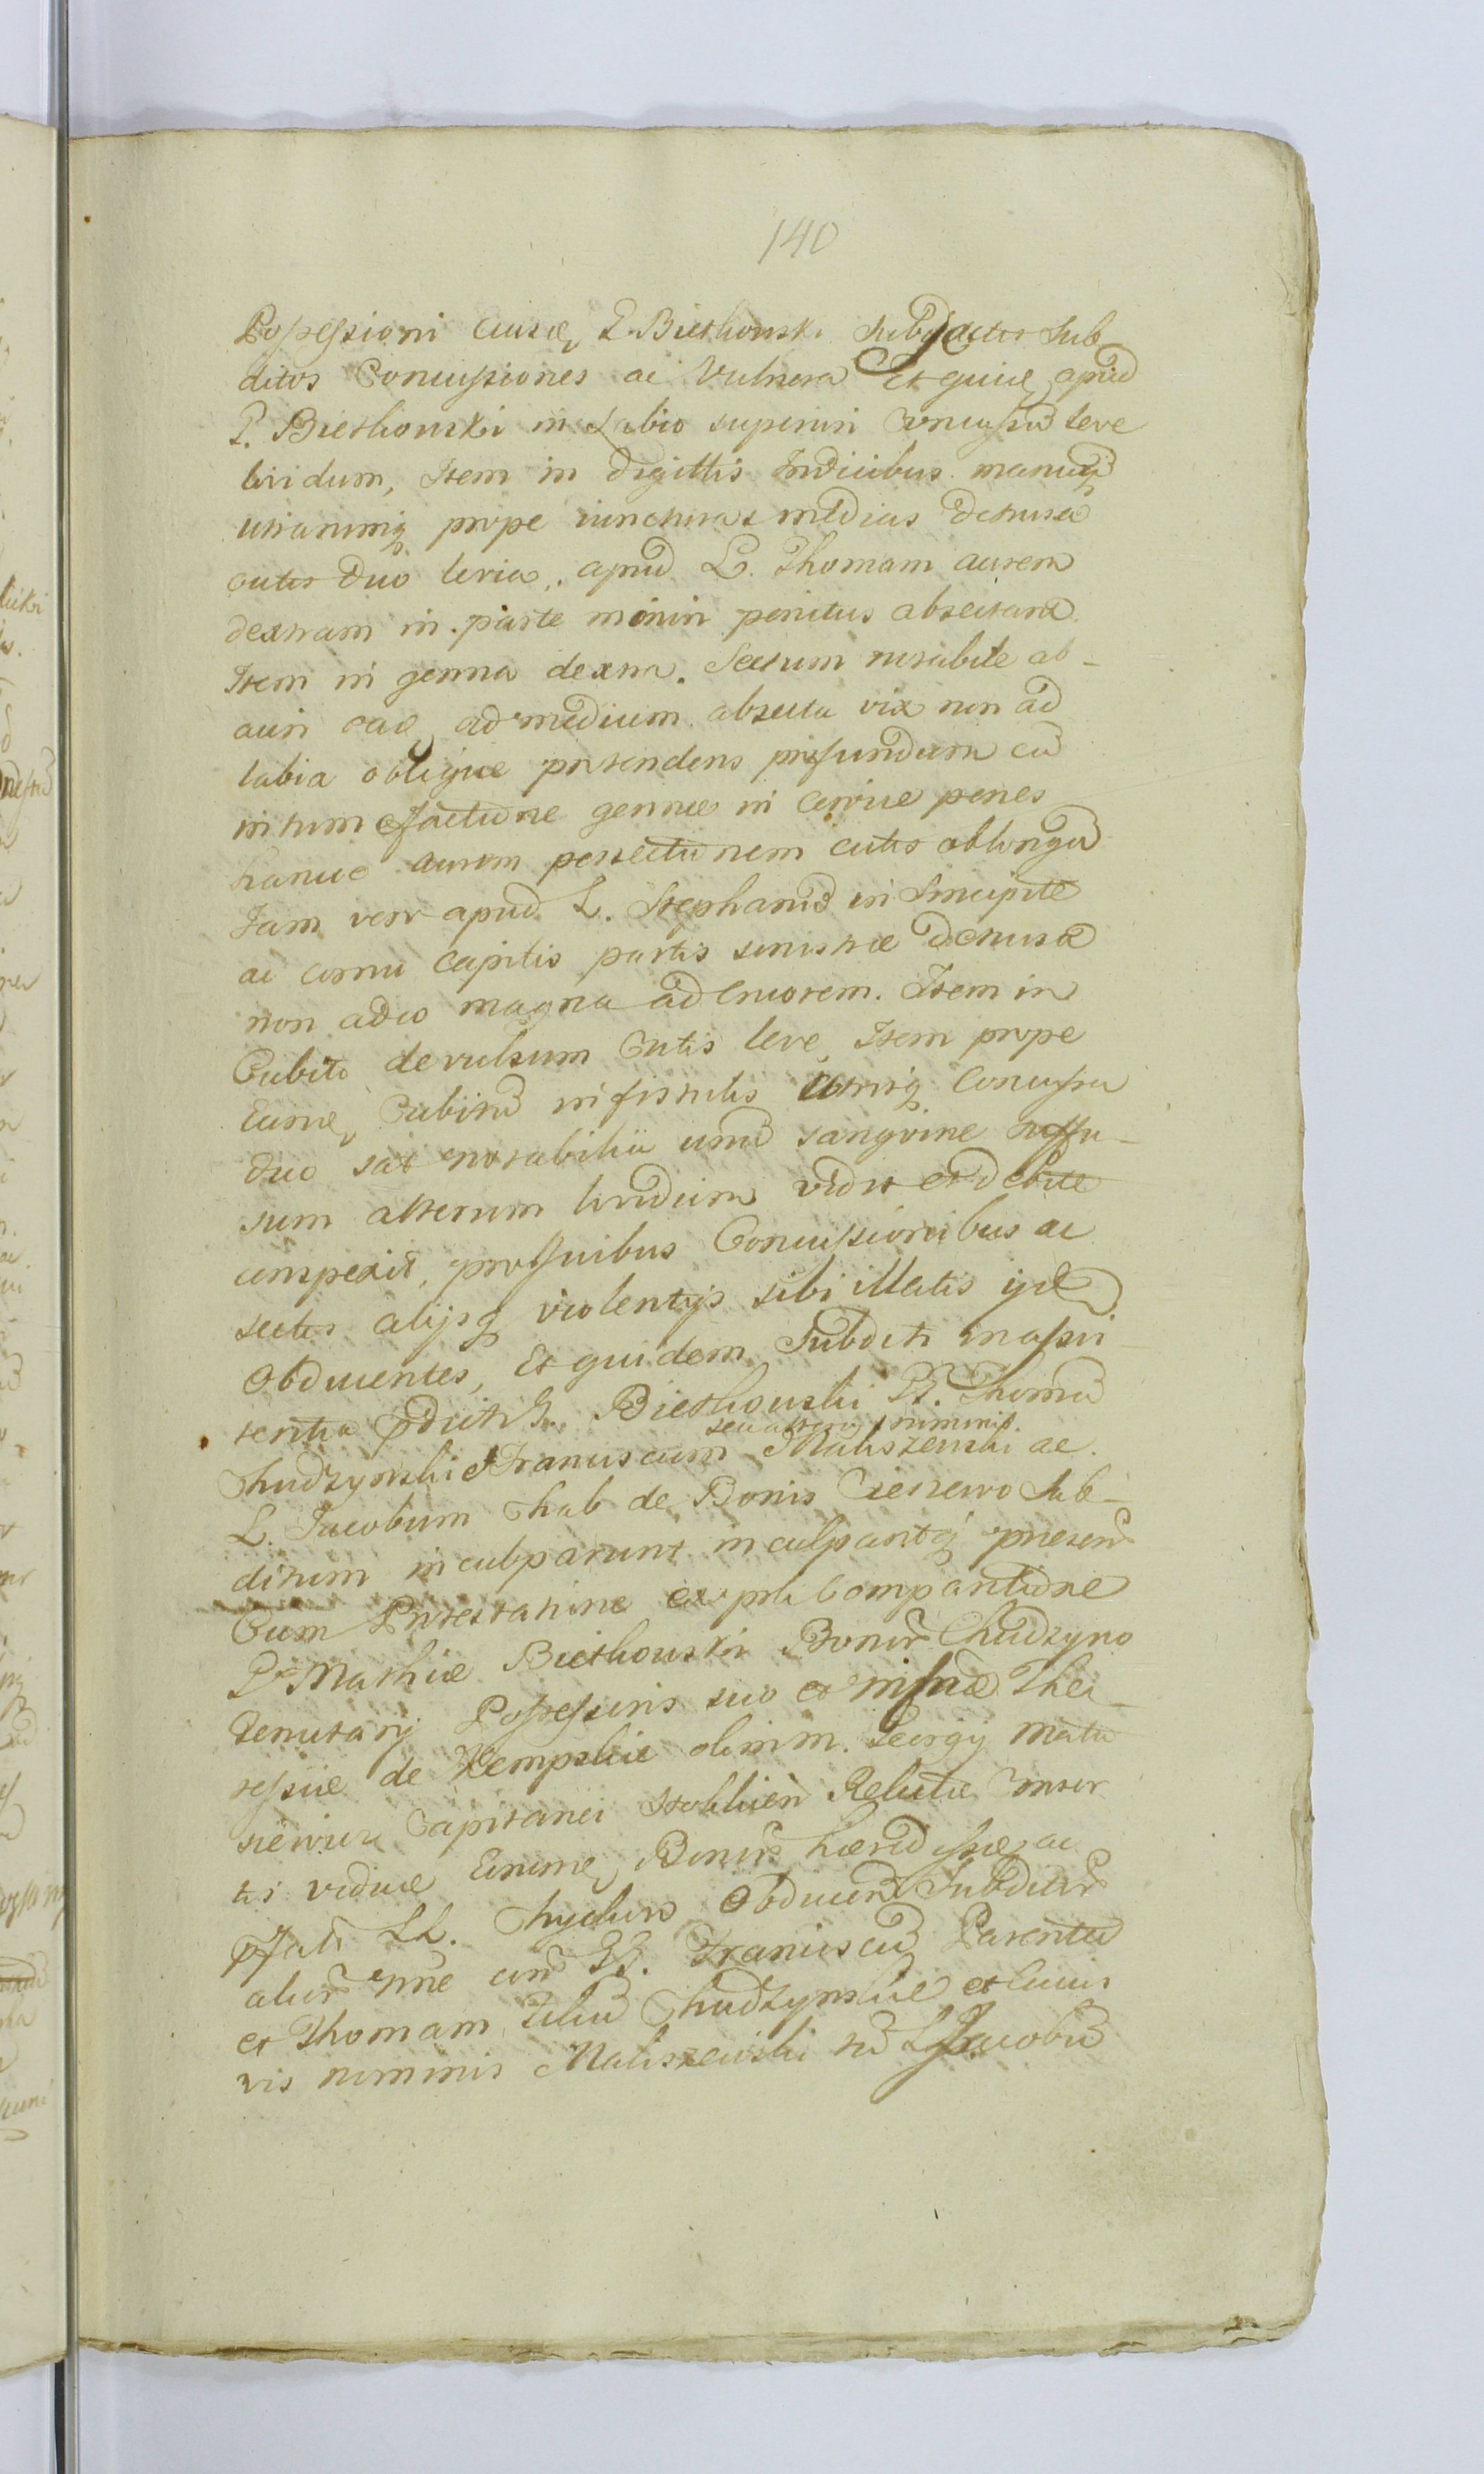 140
Possessioni eiusd G. Biethowski Subjectos Sub
ditos Concussiones ac Vulnera Et quidē apud
G. Biethowski in Labio superiori Concussū leve
lividum, Item in digittis Indicibus manuū
utrarumq prope iuncturas medias detrusa
cutis duo levia, apud L. Thomam aurem
dextram in parte minori penitus abscisam
Item in genna dextra Sectum notabile ab
auri ead ad medium absecta vix non ad
labia oblique protendens profundum cū
intumefactione gennæ in Cervice penes
hancce aurem persectionem cutis oblongā
Iam vero apud L. Stephanū in Sincipite
ac cornu Capitis partis sinistræ detrusā
non adeo magna ad Cruorem. Item in
Cubito devulsum Cutis leve, Item prope
Eund Cubitū in fistulis utrisq Concussa
duo sat notabilia unū sangvine suffu-
sum alterum lividum vidit et debite
conspexit, pro quibus Concussionibus ac
sectis alijsq violentijs sibi illatis ijd
Obducentes, Et quidem Subditi in assi
stentia pdicti G. Biethowski GG. Thomā
Chudzynski et Franciscum seu alterius nominis Maliszewski ac
L. Jacobum Chab de Bonis Ciestewo Sub-
ditum inculparunt inculpantq presen
Cum Protestatione ex psli Compartione
Gsi Mathiæ Biethowski Bonor Chudzyno
Tenutarij Possessoris suo et Mfcæ There-
ssiæ de Kempskie olim M. Georgij Matu
siewicz Capitanei Stokliscen Relictæ Consor
tis viduæ Earund Bonor hæredissæ ac
pfati LL. Chyclin Obducen Subditor
alior nne con GG. Franciscū Parentem
et Thomam Filiū Chudzynskie et cuius
vis nominis Maliszewski tū L Jacobū